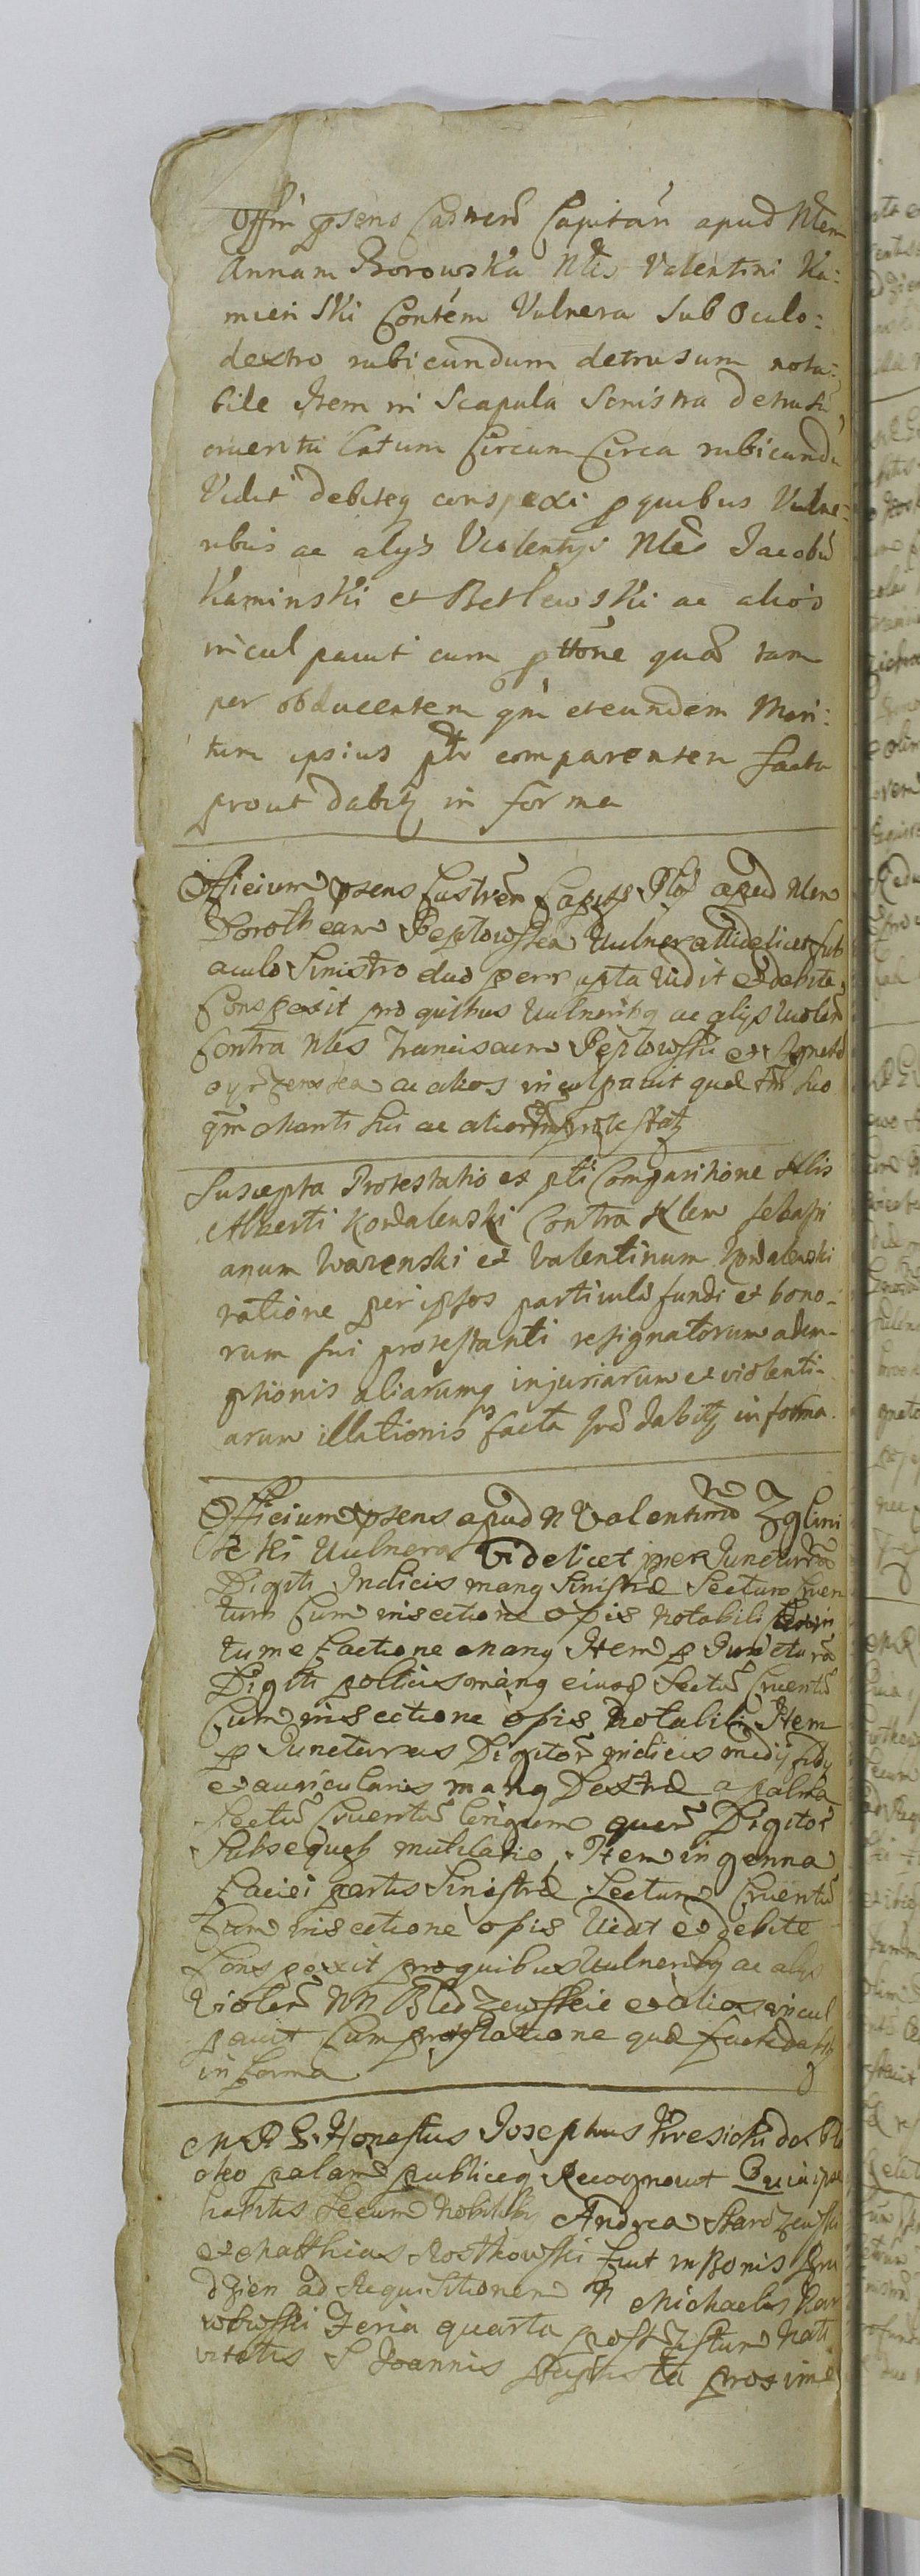 Offm pseno Castren Capitan apud Nlem
Annam Borowska Nlis Valentini Ka:
mien Ski Contem Vulnera Sub Oculo:
dextro rubicundum detrusum nota:
bile Item in Scapula Sinistra detrusu
cruentu latum Circum Circa rubicundu
Vidit debiteq conspexi p quibus Vulne:
ribus ac alys Violentys Nles Jacobu
Kaminski et Betlewski ac alios
incul pavit cum pttone qua tam
per obducentem qm et eundem Mari:
tum ipsius ptr comparenten facta
prout dabitz in forma
Officium psens Castren Capit Plo apud Nlem
Dorotheam Peplowska Vulnera videlicet sub
oculo Sinistro duo perrupta vidit et debite
Conspexit pro quibus vulneribq ac alys violen
Contra Nles Franciscum Peplowski et Agnete
ac alios inculpavit quae tm suo
qm Mariti sui ac aliorum protestatz
Suscepta Protestatio ex pti Comparitione Nlis
Alberti Kowalewski Contra Nlem Sebasti
anum Warenski et Valentinum Kowalewski
ratione per ipsos particula fundi et bono-
rum sui protestanti resignatorum adem-
ptionis aliarumq injuriarum et violenti-
arum illationis facta prt dabitz in forma.
Officium psens apud N Valentinum Zglini
cki Vulnera Videlicet per Juncturam
Digiti Indicis manq Sinistrae Sectum Cruen
tum Cum insectione ossis notabili
tume factione manq Item p Juncturam
Digiti pollicis manq eiusd Sectu Cruentu
Cum insectione ossis Notabili Item
p Juncturas Digitor indicis medy
et auricularis manq Dextrae a palma
Sectu Cruentu longum quor Digitor
Subsequetz mutilatio, Item in genna
faciei partis Sinistrae Sectum Cruentu
Cum insectione ossis Vidit et debite
Conspexit pro quibus Vulneribq ac alys
Violen NN Bledzewskie et alios incul
pavit Cum prottatione quae facta dabtz
in forma
M R S Honestus Josephus de Plo
cko palam publiceq Recognovit Quia ipse
habitis Secum Nobilibq Andrea Starozewski
et Matthias Rostkowski fuit in Bonis Gru
dzien ad Requisitionem N Michaelis Nar
wowski Feria quarta post Festum Nati
vitatis S Joannis Baptista proxime